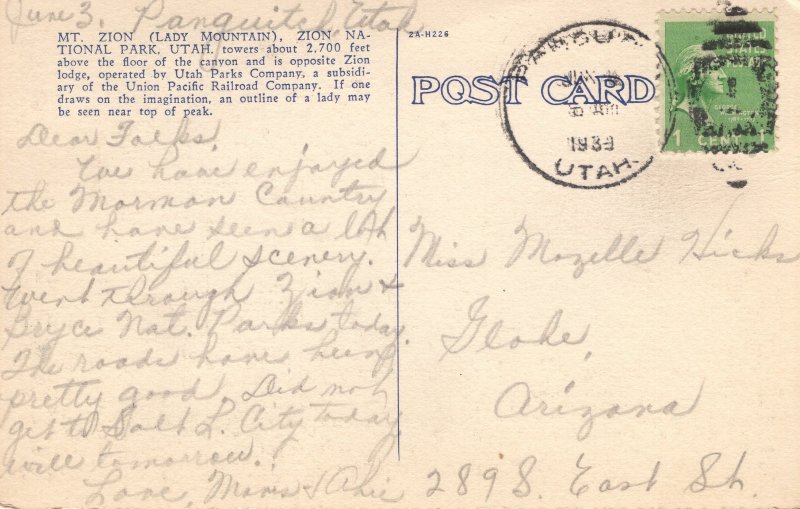 June 3. Panguitch, Utah
MT. ZION (LADY MOUNTAIN), ZION NA-
TIONAL PARK, UTAH, towers about 2,700 feet
above the floor of the canyon and is opposite Zion
lodge, operated by Utah Parks Company, a subsidi-
ary of the Union Pacific Railroad Company. If one
draws on the imagination, an outline of a lady may
be seen near top of peak.
2A-H226
POST CARD
UTAH.
1 CENT
Dear Folks,
We have enjoyed
the Mormon Country
and have seen a lot
of beautiful scenery.
Went through Zion &
Bryce Nat. Parks today.
The roads have been
pretty good. Did not
get to Salt L. City today
will tomorrow.
Love,
Miss Mozelle Hicks
Globe,
Arizona
289 S. East St.